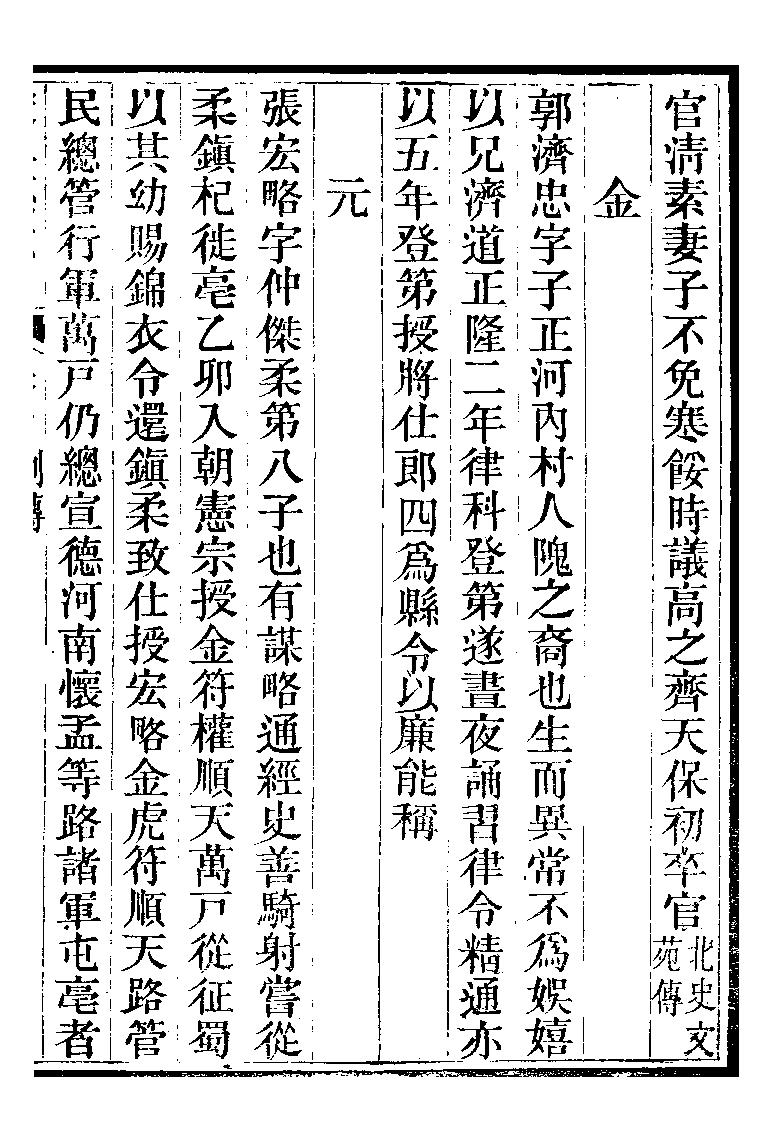 官清素妻子不免寒餒時議高之齊天保初卒官北史文苑傳
金
郭濟忠字子正河內村人隗之裔也生而異常不爲娛嬉
以兄濟道正隆二年律科登第遂晝夜誦習律令精通亦
以五年登第授將仕郎四爲縣令以廉能稱
元
張宏略字仲傑柔第八子也有謀略通經史善騎射嘗從
柔鎭杞徙亳乙卯入朝憲宗授金符權順天萬戸從征蜀
以其幼賜錦衣令還鎭柔致仕授宏略金虎符順天路管
民總管行軍萬戸仍總宣德河南懷孟等路諸軍屯亳者
列傳